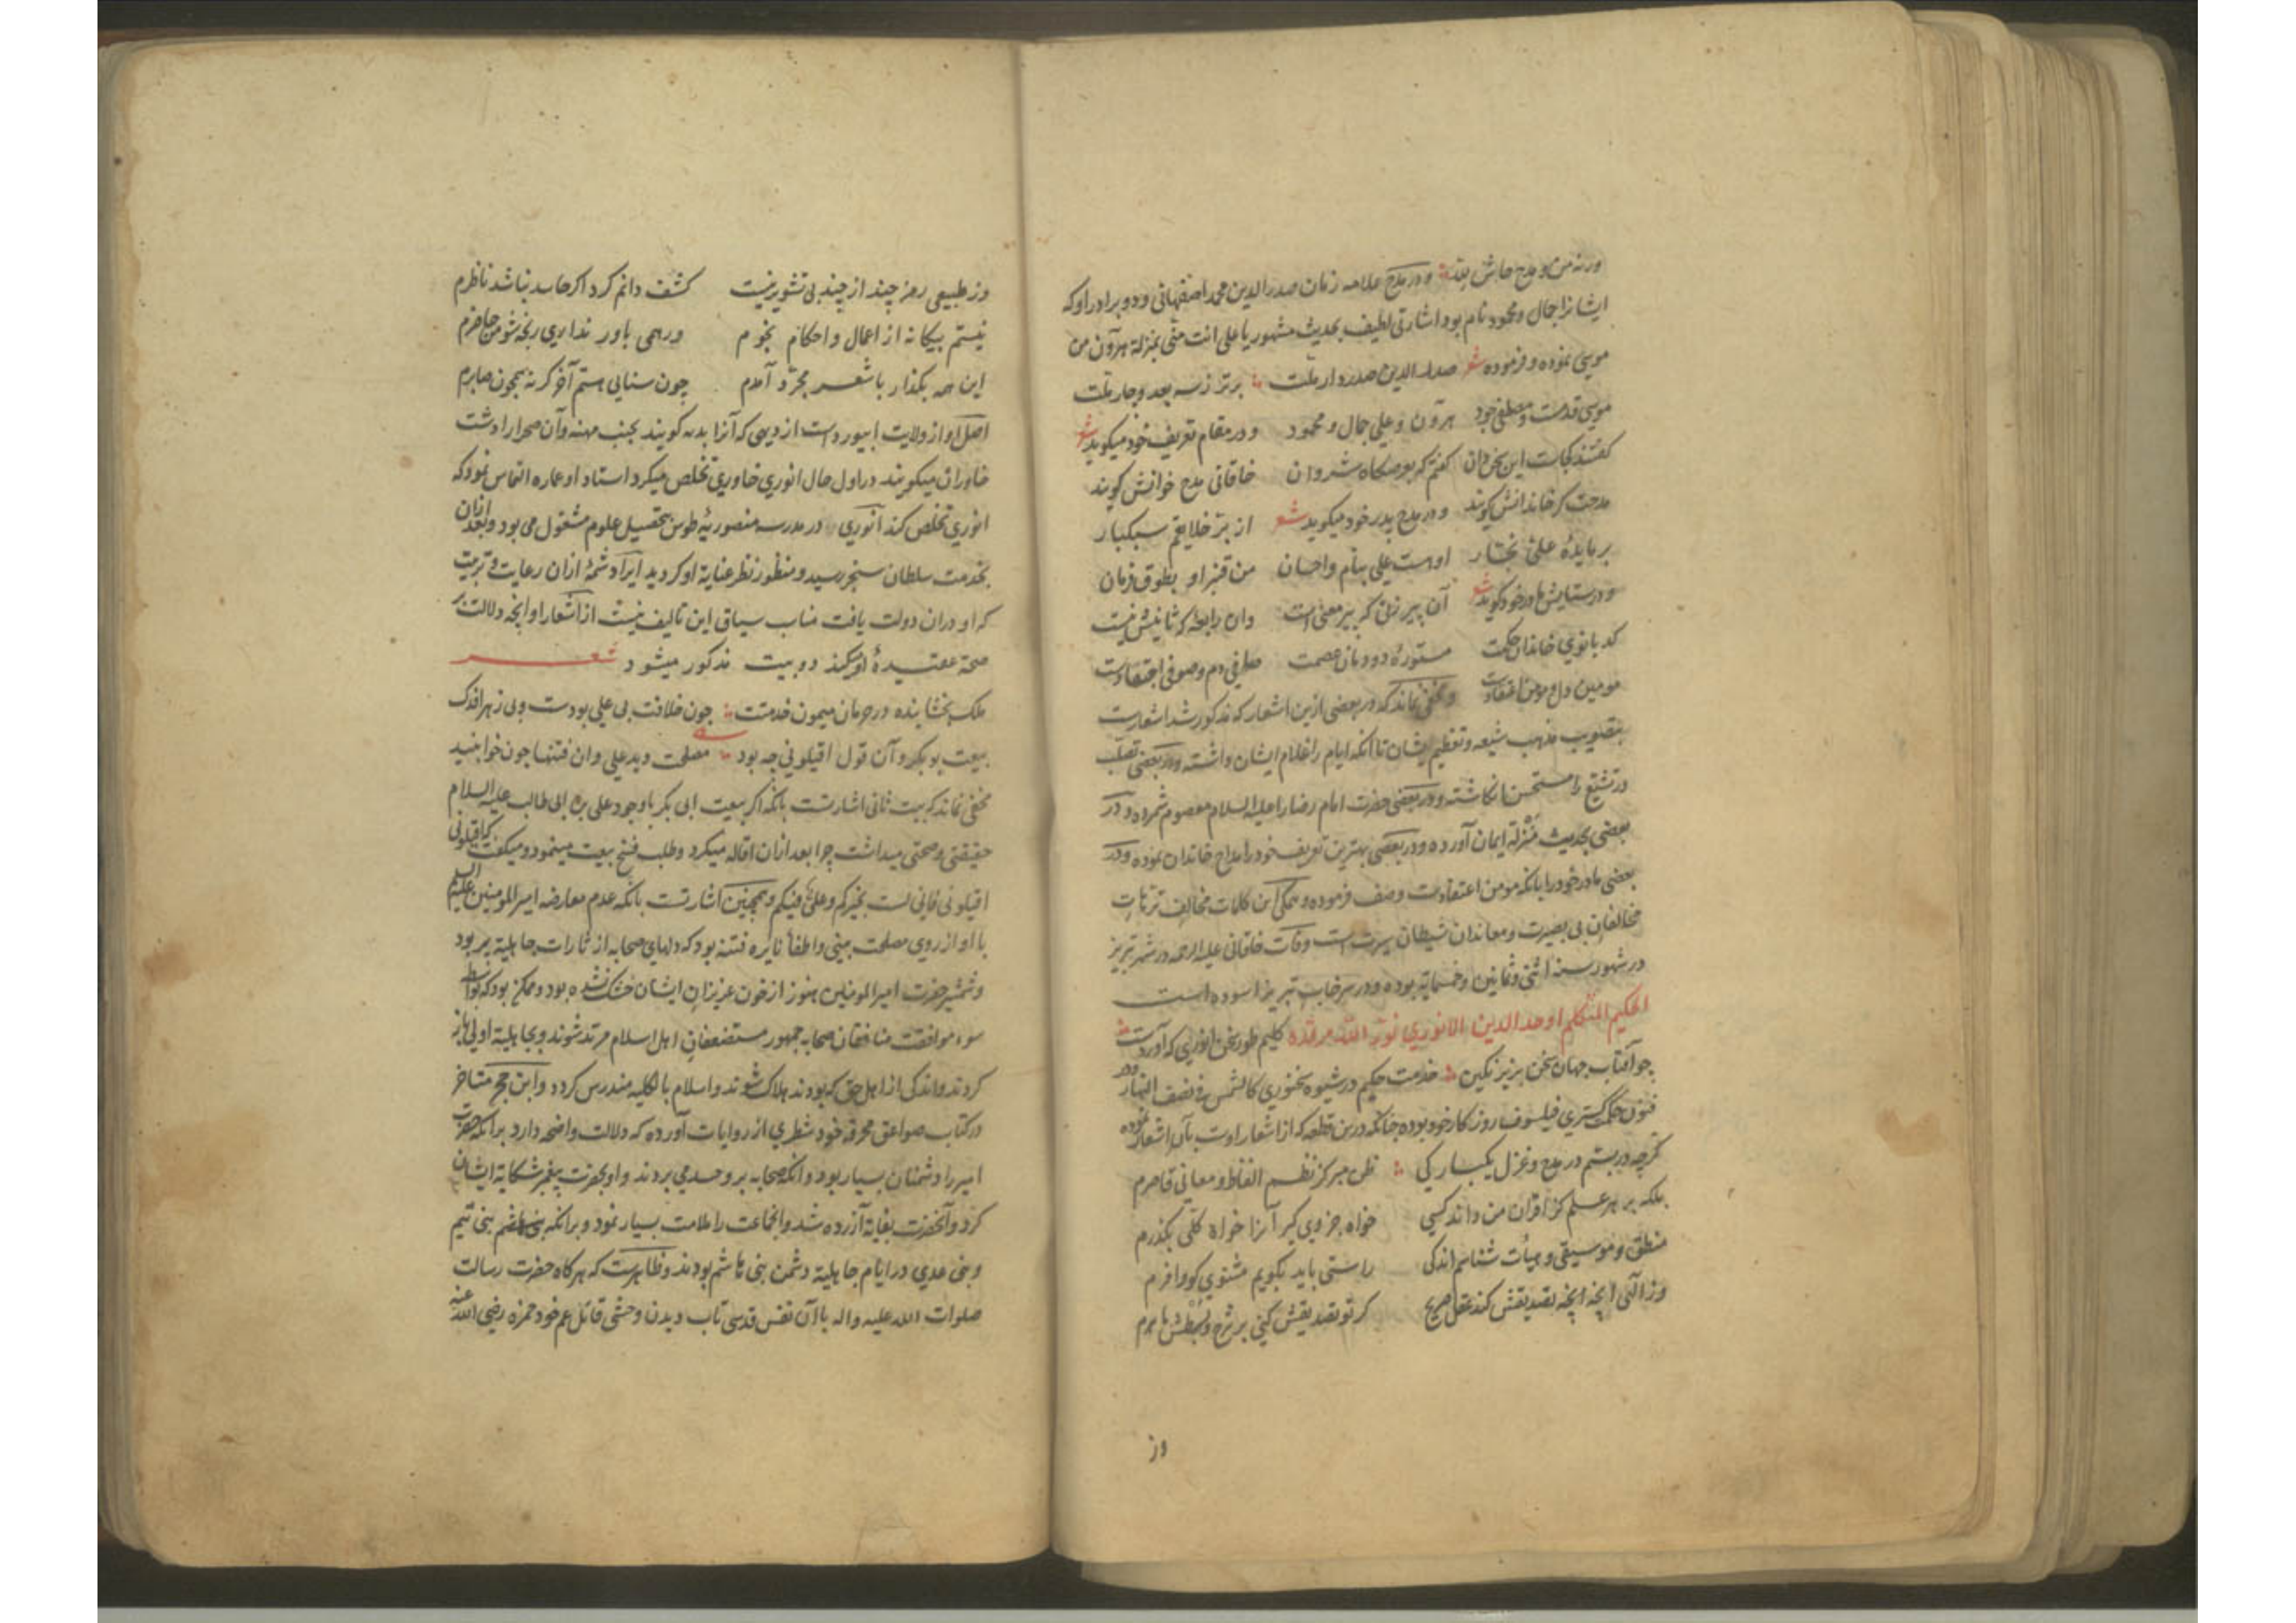 ورنه من و مدح حاش لله و در مدح علامه زمان صدر الدین محمد اصفهانی و دو برادر او که
ایشانرا جمال و محمود نام بود اشارتی لطیف بحدیث مشهور یا علی انت منی بمنزلة هرون من
موسی نموده و فرموده شعر صدر الدین صدر دار ملت برتر ز سه بعد و چار ملت
موسی قدمت و مصطفی جود هرون و علی جمال و محمود و در مقام تعریف خود میگوید شعر
کفتند کجاست این سخن دان کفتم که بوصکاه شروان خاقانی مدح خوانش کویند
مدحت کر خاندانش کویند و در مدح پدر خود میکوید شعر از بتر خلایقم سبکبار
بر مایدهٔ علی نجار اوست علی بنام و احسان من قنبر او بطوق فرمان
و در ستایش مادر خود کوید شعر آن پیر زنی که پیر معنی است وان رابعه که ثانیش نیست
کدبانوی خاندان حکمت مستورهٔ دودمان عصمت صافی دم و صوفی اجتهادست
مومین دل و مومن اعتقادست و مخفی نماند که در بعضی ازین اشعار که مذکور شد اشعارست
بتصویب مذهب شیعه و تعظیم ایشان تا آنکه ایام را غلام ایشان داشته و در بعضی تصلب
در تشیع را مستحسن انکاشته و در بعضی حضرت امام رضا را علیه السلام معصوم شمرده و در
بعضی بحدیث منزلة ایمان آورده و در بعضی بهترین تعریف خود را مداح خاندان نموده و در
بعضی مادر خود را بانکه مومن اعتقادست وصف فرموده و همکی این کلمات مخالف ترهات
مخالفان بی بصیرت و معاندان شیطان سیرت است وفات خاقانی علیه الرحمه در شهر تبریز
در شهور سنه اثنی و ثمانین و خمسمایة بوده و در سرخاب تبریز آسوده است
الحکیم المتکلم اوحد الدین الانوری نور الله مرقده کلیم طور سخن انوری که آوردست
چو آفتاب جهان سخن بزیر نکین خدمت حکیم در شیوه سخنوری کالشمس فی نصف النهار و در
فنون حکمت گستری فیلسوف روزکار خود بوده چنانکه درین قطعه که از اشعار اوست بآن اشعار نموده
کرچه در بستم در مدح و غزل یکبارکی ظن مبر کز نظم الفاظ و معانی قاصرم
بلکه بر هر علم کز اقران من داند کسی خواه جزوی کیر آنرا خواه کلی بکذرم
منطق و موسیقی و هیأت شناسم اندکی راستی باید بکویم مشنوی کو وافرم
وز الهی انچه انچه تصدیقش کند عقل صریح کر تو تصدیقش کنی بر شرح و بسطش ماهرم
وز
وز طبیعی رمز چند از چند بی تشویر نیست کشف دانم کرد اکر حاسد نباشد ناظرم
نیستم بیکانه از اعمال و احکام نجوم ور همی باور نداری رنجه شو من حاضرم
این همه بکذار با شعر مجرد آمدم چون سنایی هستم آخر کرنه همچون صابرم
اصل او از ولایت ابیورد است از دیهی که آنرا بدنه کویند بجنب مهنه و آن صحرا را دشت
خاوران میکویند در اول حال انوری خاوری تخلص میکرد استاد او عماره التماس نمود که
انوری تخلص کند انوری در مدرسه منصوریهٔ طوس بتحصیل علوم مشغول می بود و بعد ازان
بخدمت سلطان سنجر رسید و منظور نظر عنایة او کردید ایراد شمهٔ ازان رعایت و تربیت
که او دران دولت یافت مناسب سیاق این تالیف نیست از اشعار او انچه دلالت بر
صحة عقیدهٔ او میکند دو بیت مذکور میشود شعر
ملک بخشاینده در حرمان میمون خدمتت چون خلافت بی علی بودست و بی زهرا فدک
بیعت بوبکر و آن قول اقیلونی چه بود مصلحت دید علی وان فتنها چون خوابنید
مخفی نماند که بیت ثانی اشارتست بانکه اکر بیعت ابی بکر با وجود علی بن ابی طالب علیه السلام
حقیقتی و صحتی میداشت چرا بعد ازان اقاله میکرد و طلب فسخ بیعت مینمود و میکفت که اقیلونی
اقیلونی فانی لست بخیرکم و علی فیکم و همچنین اشارتست بانکه عدم معارضه امیر المومنین علیه السلم
با او از روی مصلحت بینی و اطفأ نایره فتنه بود که دلهای صحابه از ثارات جاهلیة پر بود
و شمشیر حضرت امیر المومنین هنوز از خون عزیزان ایشان خشک نشده بود و ممکن بود که بواسطه
سوء موافقت منافقان صحابه جمهور مستضعفان اهل اسلام مرتد شوند و بجاهلیة اولی باز
کردند و اندکی از اهل حق که بودند هلاک شوند و اسلام بالکلیه مندرس کردد و ابن حجر متاخر
در کتاب صواعق محرقه خود شطری از روایات آورده که دلالت واضحه دارد برانکه حضرت
امیر را دشمنان بسیار بود و انکه صحابه برو حسد می بردند و او بحضرت پیغمبر شکایة ایشان
کرد و آنحضرت بغایة آزرده شد و انجماعت را ملامت بسیار نمود و برانکه بنی تیم
و بنی عدی در ایام جاهلیة دشمن بنی هاشم بودند و ظاهرست که هرکاه حضرت رسالت
صلوات الله علیه واله با آن نفس قدسی تاب دیدن وحشی قاتل عم خود حمزه رضی الله عنه